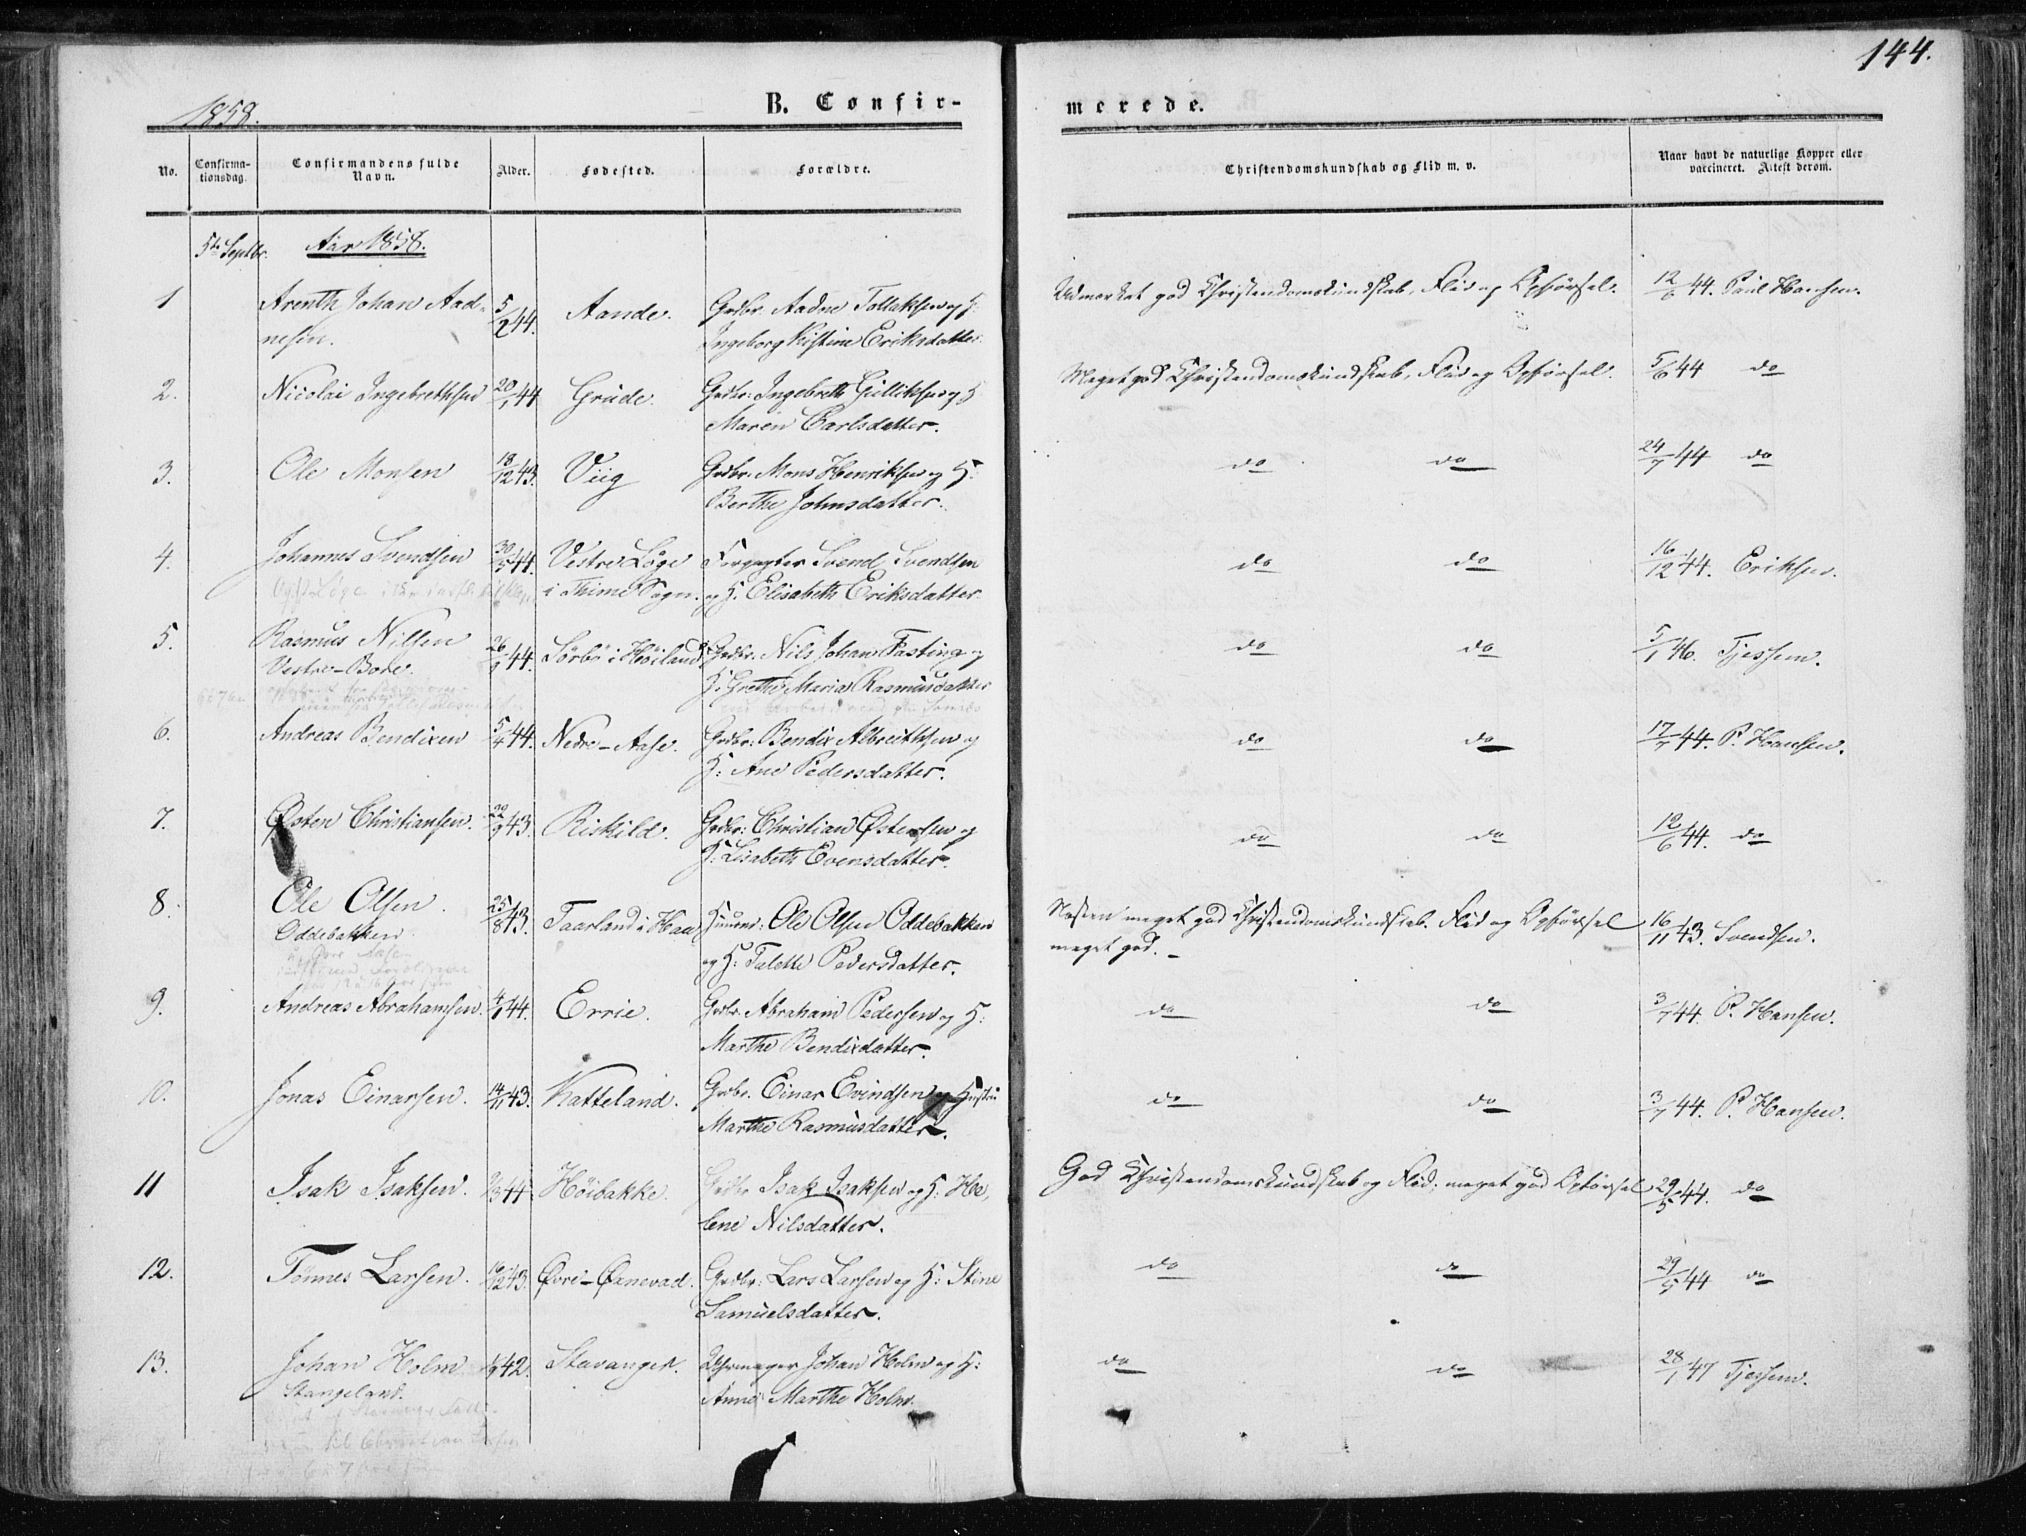 144.
1858.
B. Confir-
merede.
No.
Confirma-
tionsdag.
Confirmandens fulde
Navn.
Alder.
Fødested.
Forældre.
Christendomskundskab og Flid m. v.
Naar havt de naturlige Kopper eller
vaccineret. Attest derom.
5te Septbr. Aar 1858.
1 Arenth Johan Aad- 5/2 44. Aande. Grdbr. Aadne Tollaksen og H: Udmærket god Christendomskundskab, Flid og Opførsel. 12/6 44. Paul Hansen.
nesen. Ingeborg Kistine Eriksdatter
2. Nicolai Ingebrethsen 20/1 44 Grude. Grdbr: Ingebreth Gulliksen og H Meget god Christendomskundskab, Flid og Opførsel. 5/6 44 do
Maren Carlsdatter.
3. Ole Monsen 18/12 43. Viig Grdbr. Mons Henriksen og H: do do 24/7 44 do
Berthe Johnsdatter.
4. Johannes Svendsen 44. Vestre Løge Forpagter Svend Svendsen do do 16/12 44. Eriksen.
i Thime Sogn. og H. Elisabeth Eriksdatter
5. Rasmus Nilsen 44. Sørbø i Høiland Grdbr. Nils Johan Fasting og do do 5/1 46. Tjessem.
Vestre-Bore. H: Grethe Maria Rasmusdatter
6. Andreas Bendixen 5/4 44. Nedre-Aase. Grdbr: Bendix Albreithsen og do do 17/7 44. P. Hansen.
H: Ane Pedersdatter.
7. Østen Christiansen. 22/9 43. Riskild. Grdbr: Christian Østensen og do do 12/6 44. do
H: Lisabeth Evensdatter.
8. Ole Olsen. 25/8 43. Taarland i Haa Huusmd: Ole Olsen Oddebakken Næsten meget god Christendomskundskab. Flid og Opførsel 16/11 43. Svendsen.
Oddebakken og H: Talette Pedersdatter. meget god.
9. Andreas Abrahamsen. 44. Errie. Grdbr. Abraham Pedersen og H: do do 3/7 44. P. Hansen.
Marthe Bendixdatter.
10. Jonas Einarsen. 14/11 43. Katteland. Grdbr. Einar Evindsen og Hustru do do 3/7 44. P. Hansen.
Marthe Rasmusdatter.
11 Isak Isaksen. 44. Høibakke. Grdbr Isak Isaksen og H: He- God Christendomskundskab og Flid; meget god Opførsel 29/5 44. do
lene Nilsdatter.
12. Tønnes Larsen. 43. Øvre-Øxnevad. Grdbr: Lars Larsen og H: Stine do do 29/5 44 do
Samuelsdatter.
13. Johan Holm 42. Stavanger. Uhrmager Johan Holm og H: do do 28/1 47 Tjessem.
Stangeland. Anne Marthe Holm.